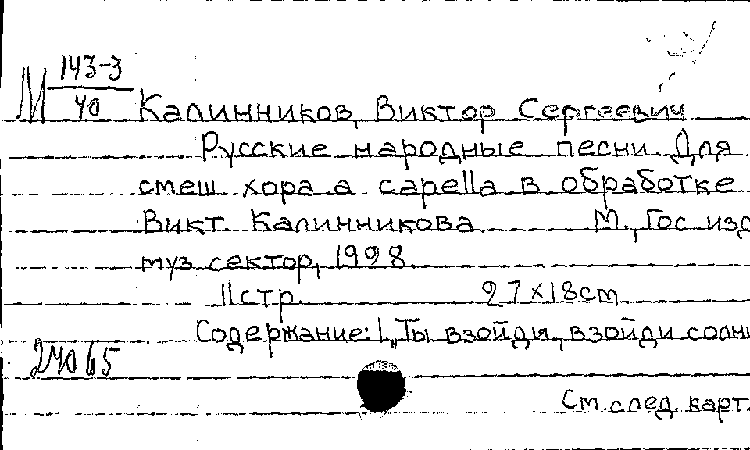 М 143-3
40 Калинников, Виктор Сергеевич
Русские народные песни. Для
смеш. хора a capella в обработке
Викт. Калинникова М., Гос. изд
муз. сектор, 1928
11 стр. 27х18cm
Содержание: 1. „Ты взойди, взойди солн
24065
См. след. карт.